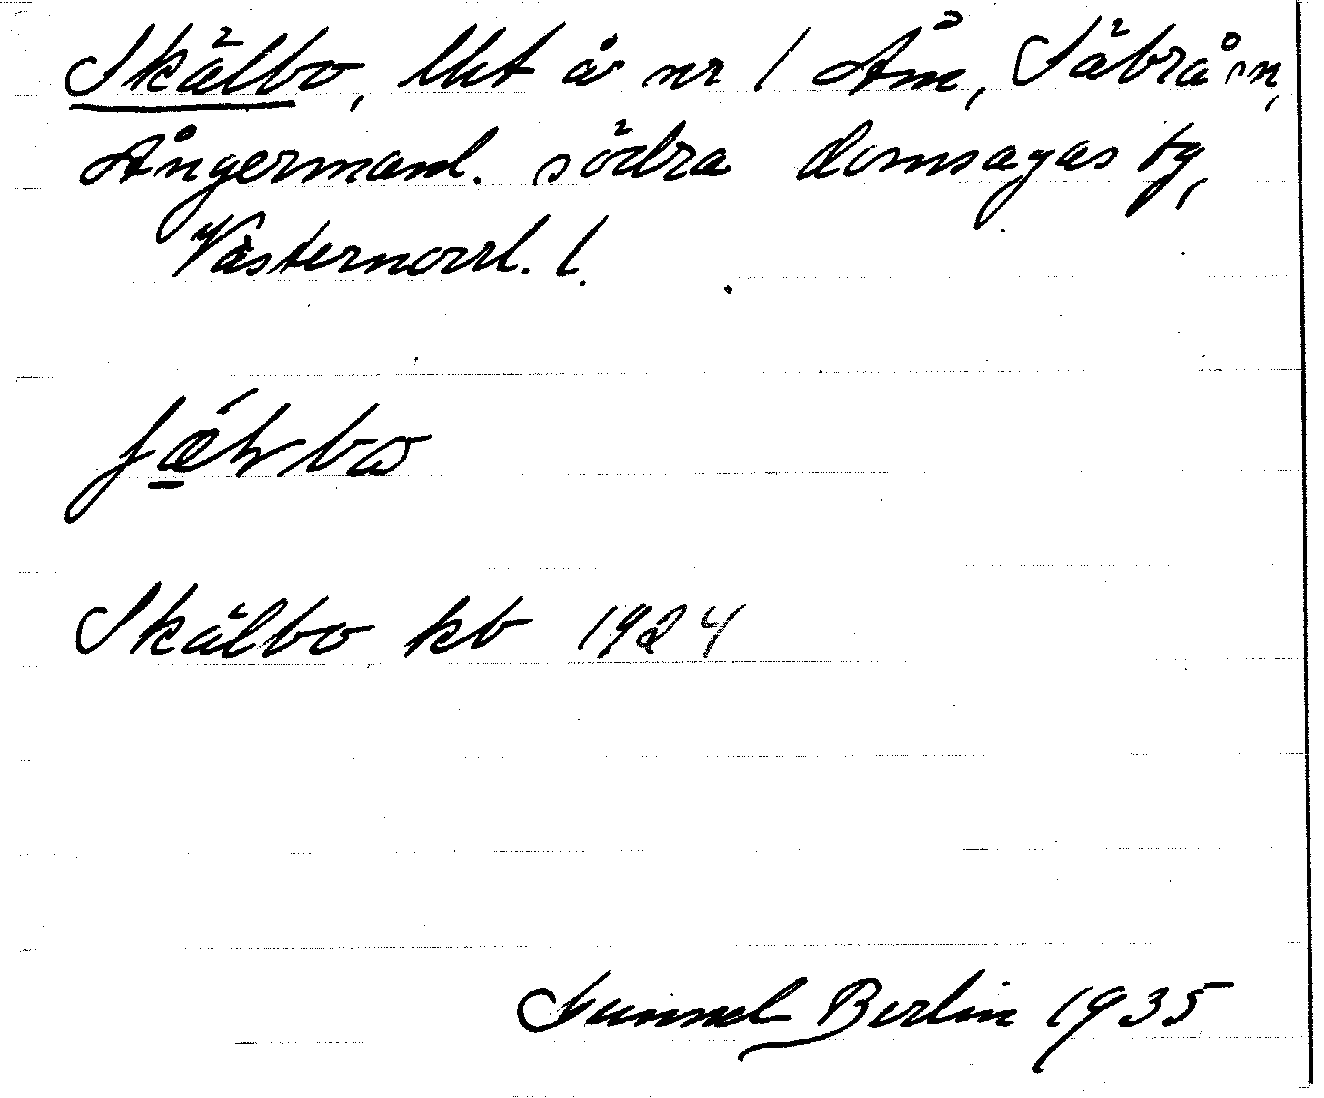 Skälbo, lht å nr 1 Åm, Säbrå sn,
Ångermanl. södra domsagas tg,
Västernorrl. l.
Skälbo kb 1924
Gunnel Berlin 1935